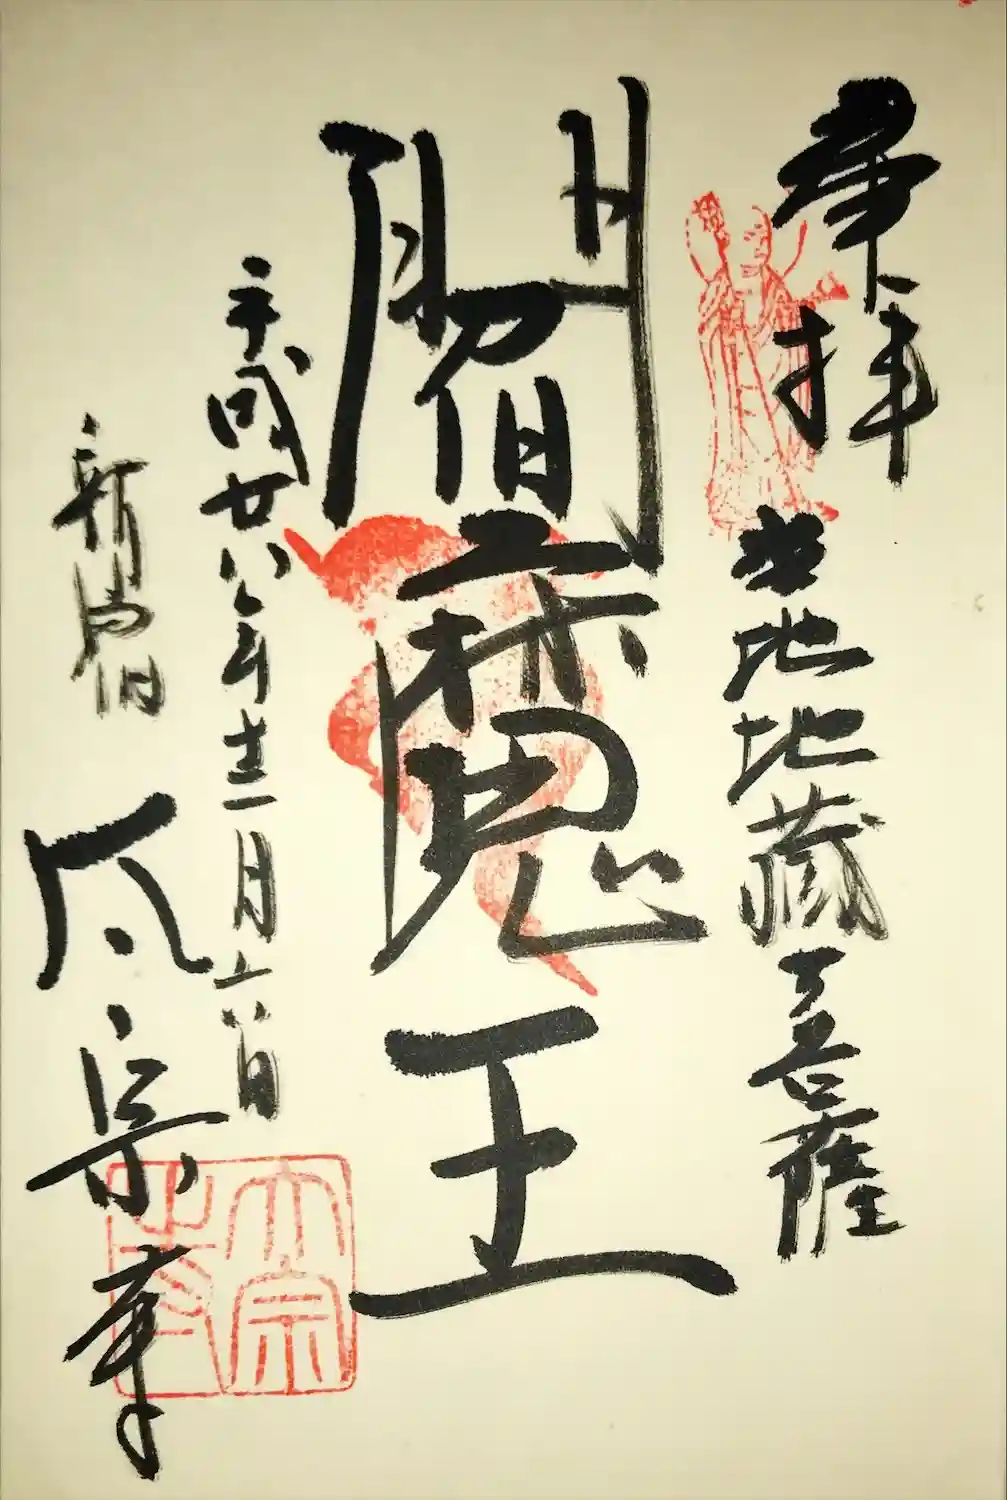 奉拝
本地地蔵菩薩
閻魔王
平成廿八年十二月六日
新宿
太宗寺